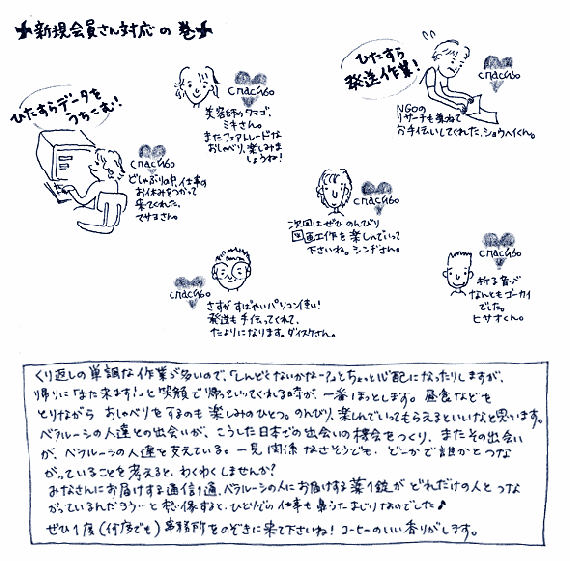 新規会員さん対応の巻
ひたすらデータを
うちこむ!
спасибо
美容師のタマゴ、
ミキさん。
またフェアトレードな
おしゃべり、楽しみま
しょうね!
ひたすら
発送作業!
спасибо
NGOの
リサーチも兼ねて
お手伝いしてくれた、ショウヘイくん。
спасибо
どしゃぶりの中、仕事の
お休みをつかって
来てくれた、
マサヨさん。
спасибо
次回もぜひのんびり
図画工作を楽しんでいって
下さいね。シンヂさん。
спасибо
さすがすばやいパソコン使い!
発送も手伝ってくれて、
たよりになります。ダイスケさん。
спасибо
折る音が
なんともゴーカイ
でした。
ヒサオくん。
くり返しの単調な作業が多いので、「しんどくないかなー?」とちょっと心配になったりしますが、
帰りに「また来ます!」と笑顔で帰っていってくれる時が、一番ほっとします。昼食などを
とりながら おしゃべりをするのも楽しみのひとつ。のんびり、楽しんでいってもらえるといいなと思います。
ベラルーシの人達との出会いが、こうした日本での出会いの機会をつくり、またその出会い
が、ベラルーシの人達を支えている。一見関係なさそうでも、どこかで誰かとつな
がっていることを考えると、わくわくしませんか?
みなさんにお届けする通信1通、ベラルーシの人にお届けする薬1錠が どれだけの人とつな
がっているんだろう…と想像すると、ひとりでの仕事も鼻うたまじりなのでした♪
ぜひ1度(何度でも)事務所をのぞきに来て下さいね!コーヒーのいい香りがします。